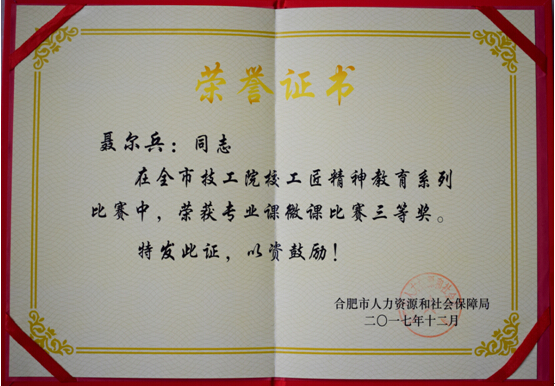 荣誉证书
聂尔兵：同志
在全市技工院校工匠精神教育系列
比赛中，荣获专业课微课比赛三等奖。
特发此证，以资鼓励！
合肥市人力资源和社会保障局
二〇一七年十二月